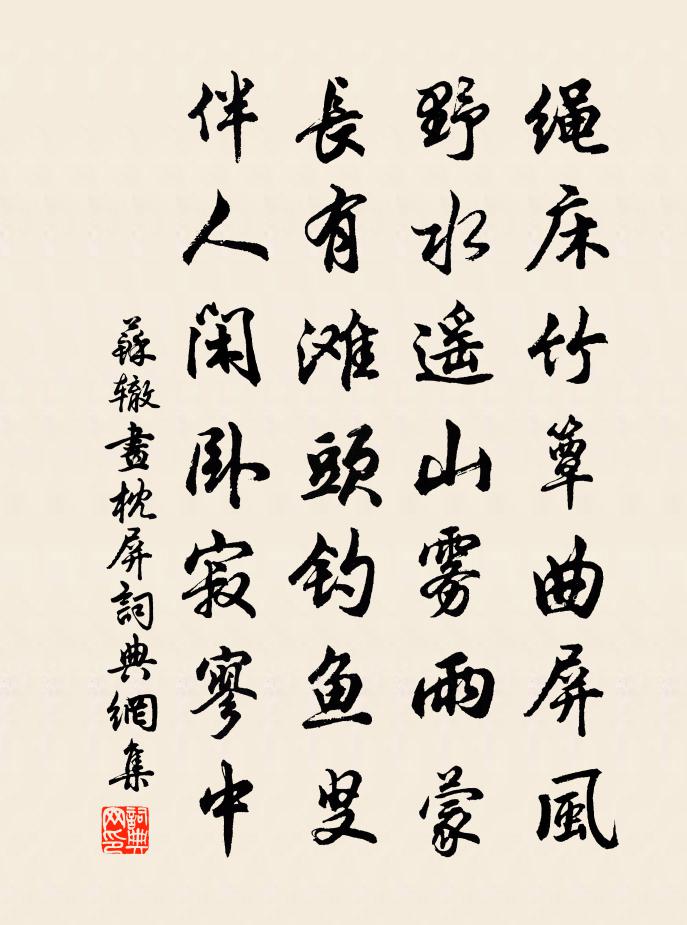 绳床竹簟曲屏風
野水遥山雾雨蒙
長有滩頭钓鱼叟
伴人闲卧寂寥中
蘇辙畫枕屏詞典網集
詞典網印